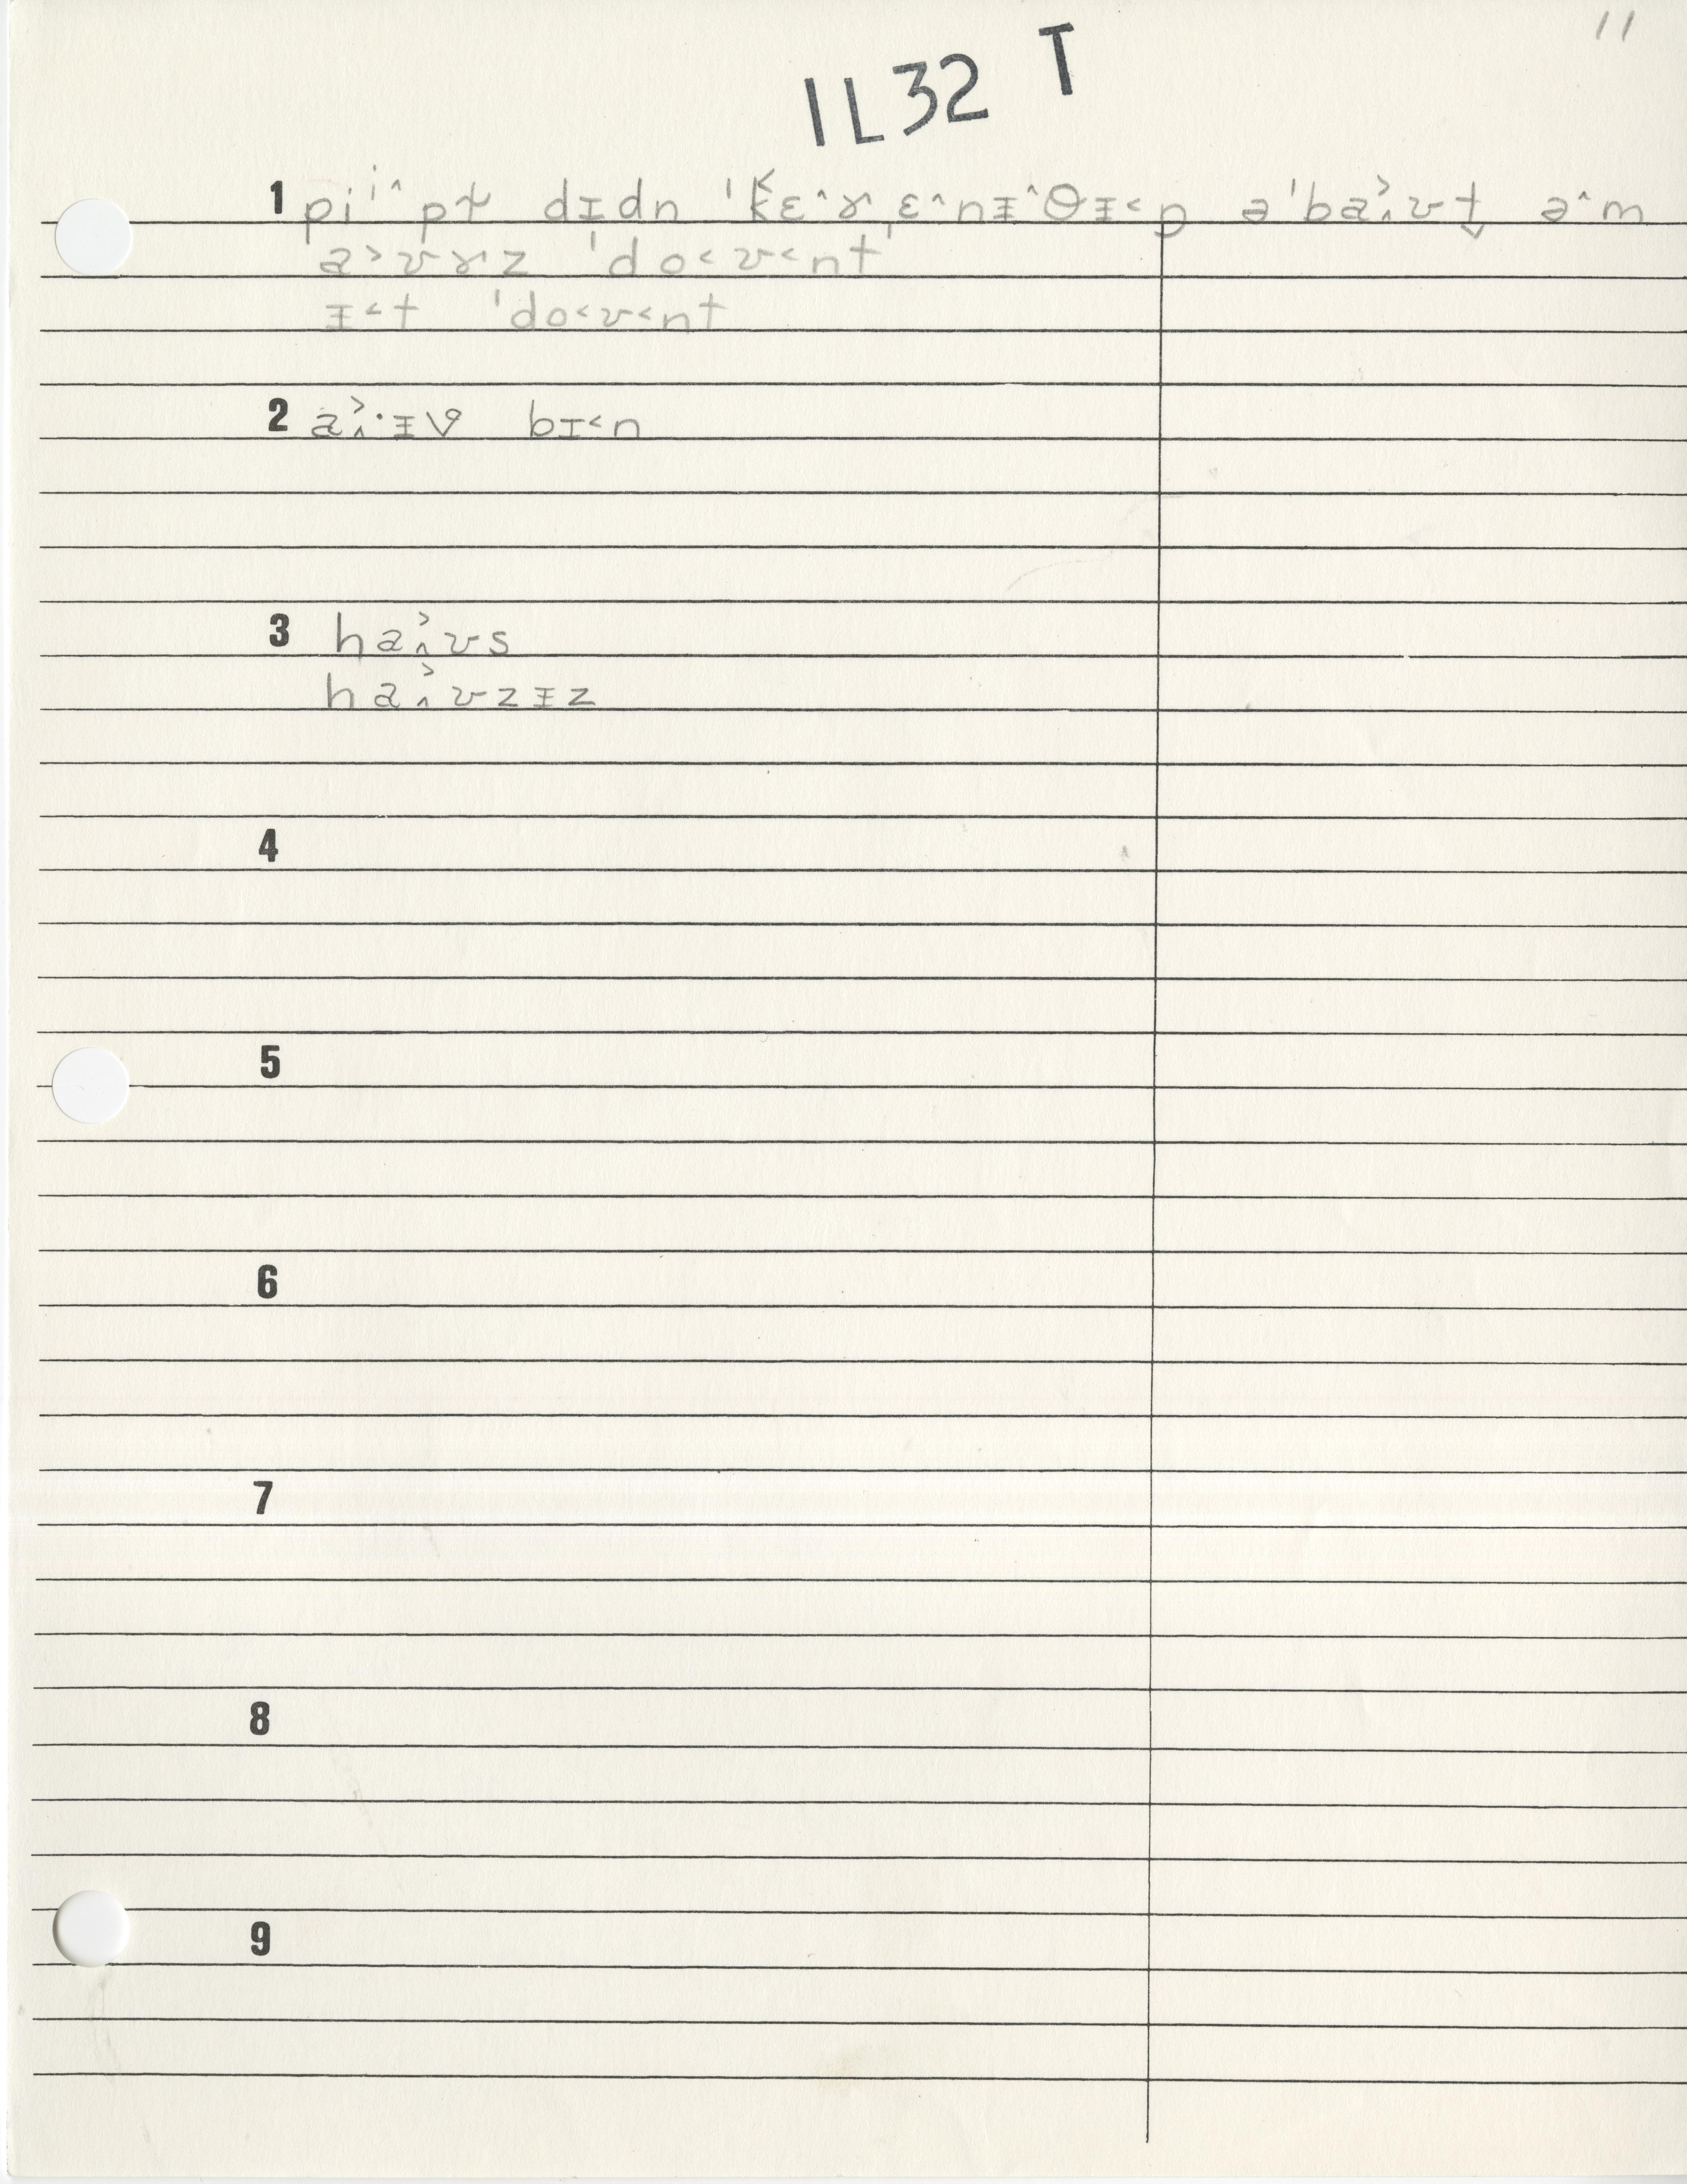 11
IL32 T
1 piⁱ^ pɫ dɪdn ˈk̆ɛ^ɤˌɛ^nɪ̵^θɪ̵˂ŋ əˈba̭˃ʊt̬ ə^m
a˃ʊɤz ˈdo˂ʊ˂nt
ɪ̵˂t ˈdo˂ʊ˂nt
2 a̭˃·ɪ̵v bɪ˂n
3 ha̭˃ʊs
ha̭˃ʊzɪ̵z
4
5
6
7
8
9